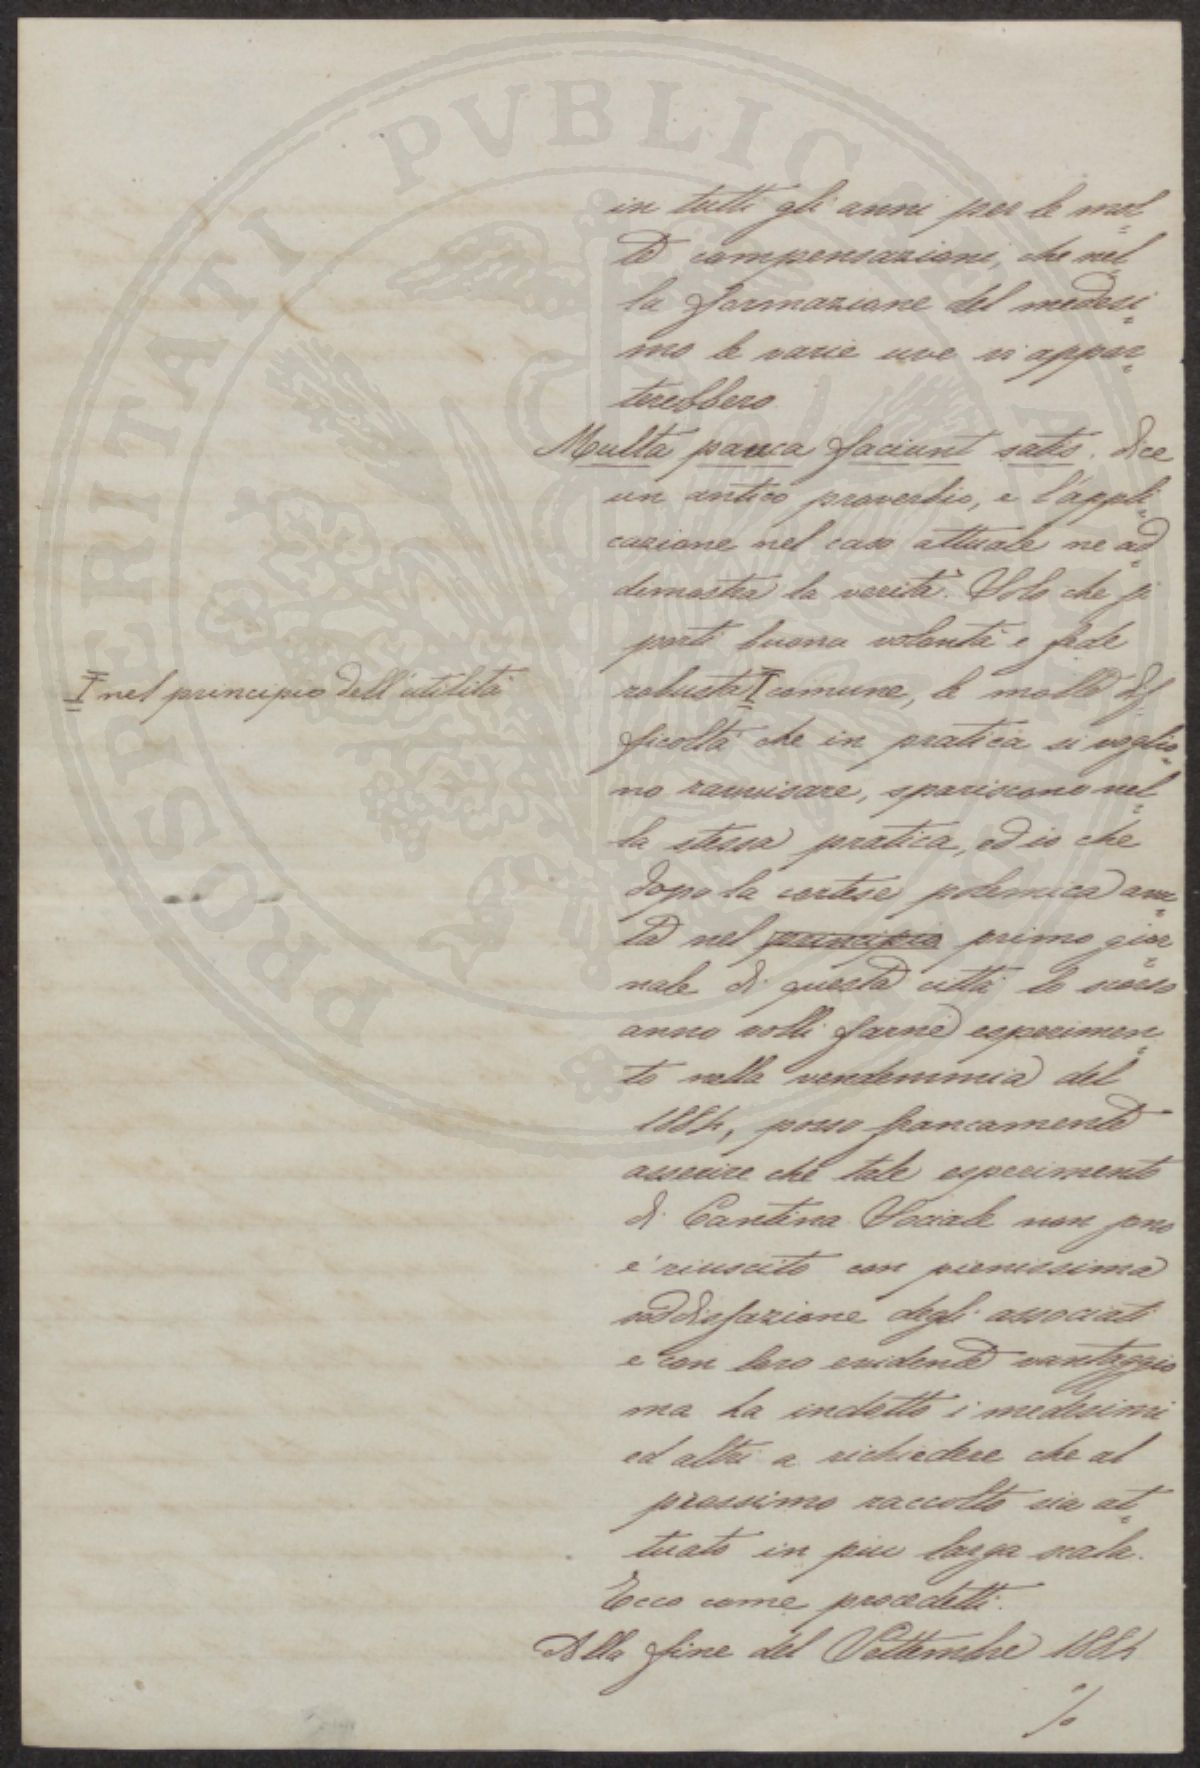 in tutti gli anni per le mol=
te compensazioni, che nel=
la formazione del medesi=
mo le varie uve vi appor=
terebbero.
Multa pauca faciunt satis. dice
un antico proverbio, e l'appli=
cazione nel caso attuale ne ad=
dimostra la verità. Solo che si
porti buona volontà e fede
robusta I comune, le molte dif=
I nel principio dell'utilità
ficoltà che in pratica si voglio=
no ravvisare, spariscono nel=
la stessa pratica, ed io che
dopo la cortese polemica avu=
ta nel principio primo gior=
nale di questa città lo scorso
anno volli farne esperimen=
to nella vendemmia del
1884, posso francamente
asserire che tale esperimento
di Cantina Sociale non solo
è riuscito con pienissima
soddisfazione degli associati
e con loro evidente vantaggio
ma ha indotto i medesimi
ed altri a richiedere che al
prossimo raccolto sia at=
tuato in più larga scala.
Ecco come procedetti.
Alla fine del Settembre 1884
%
PROSPERITATI PVBLICAE